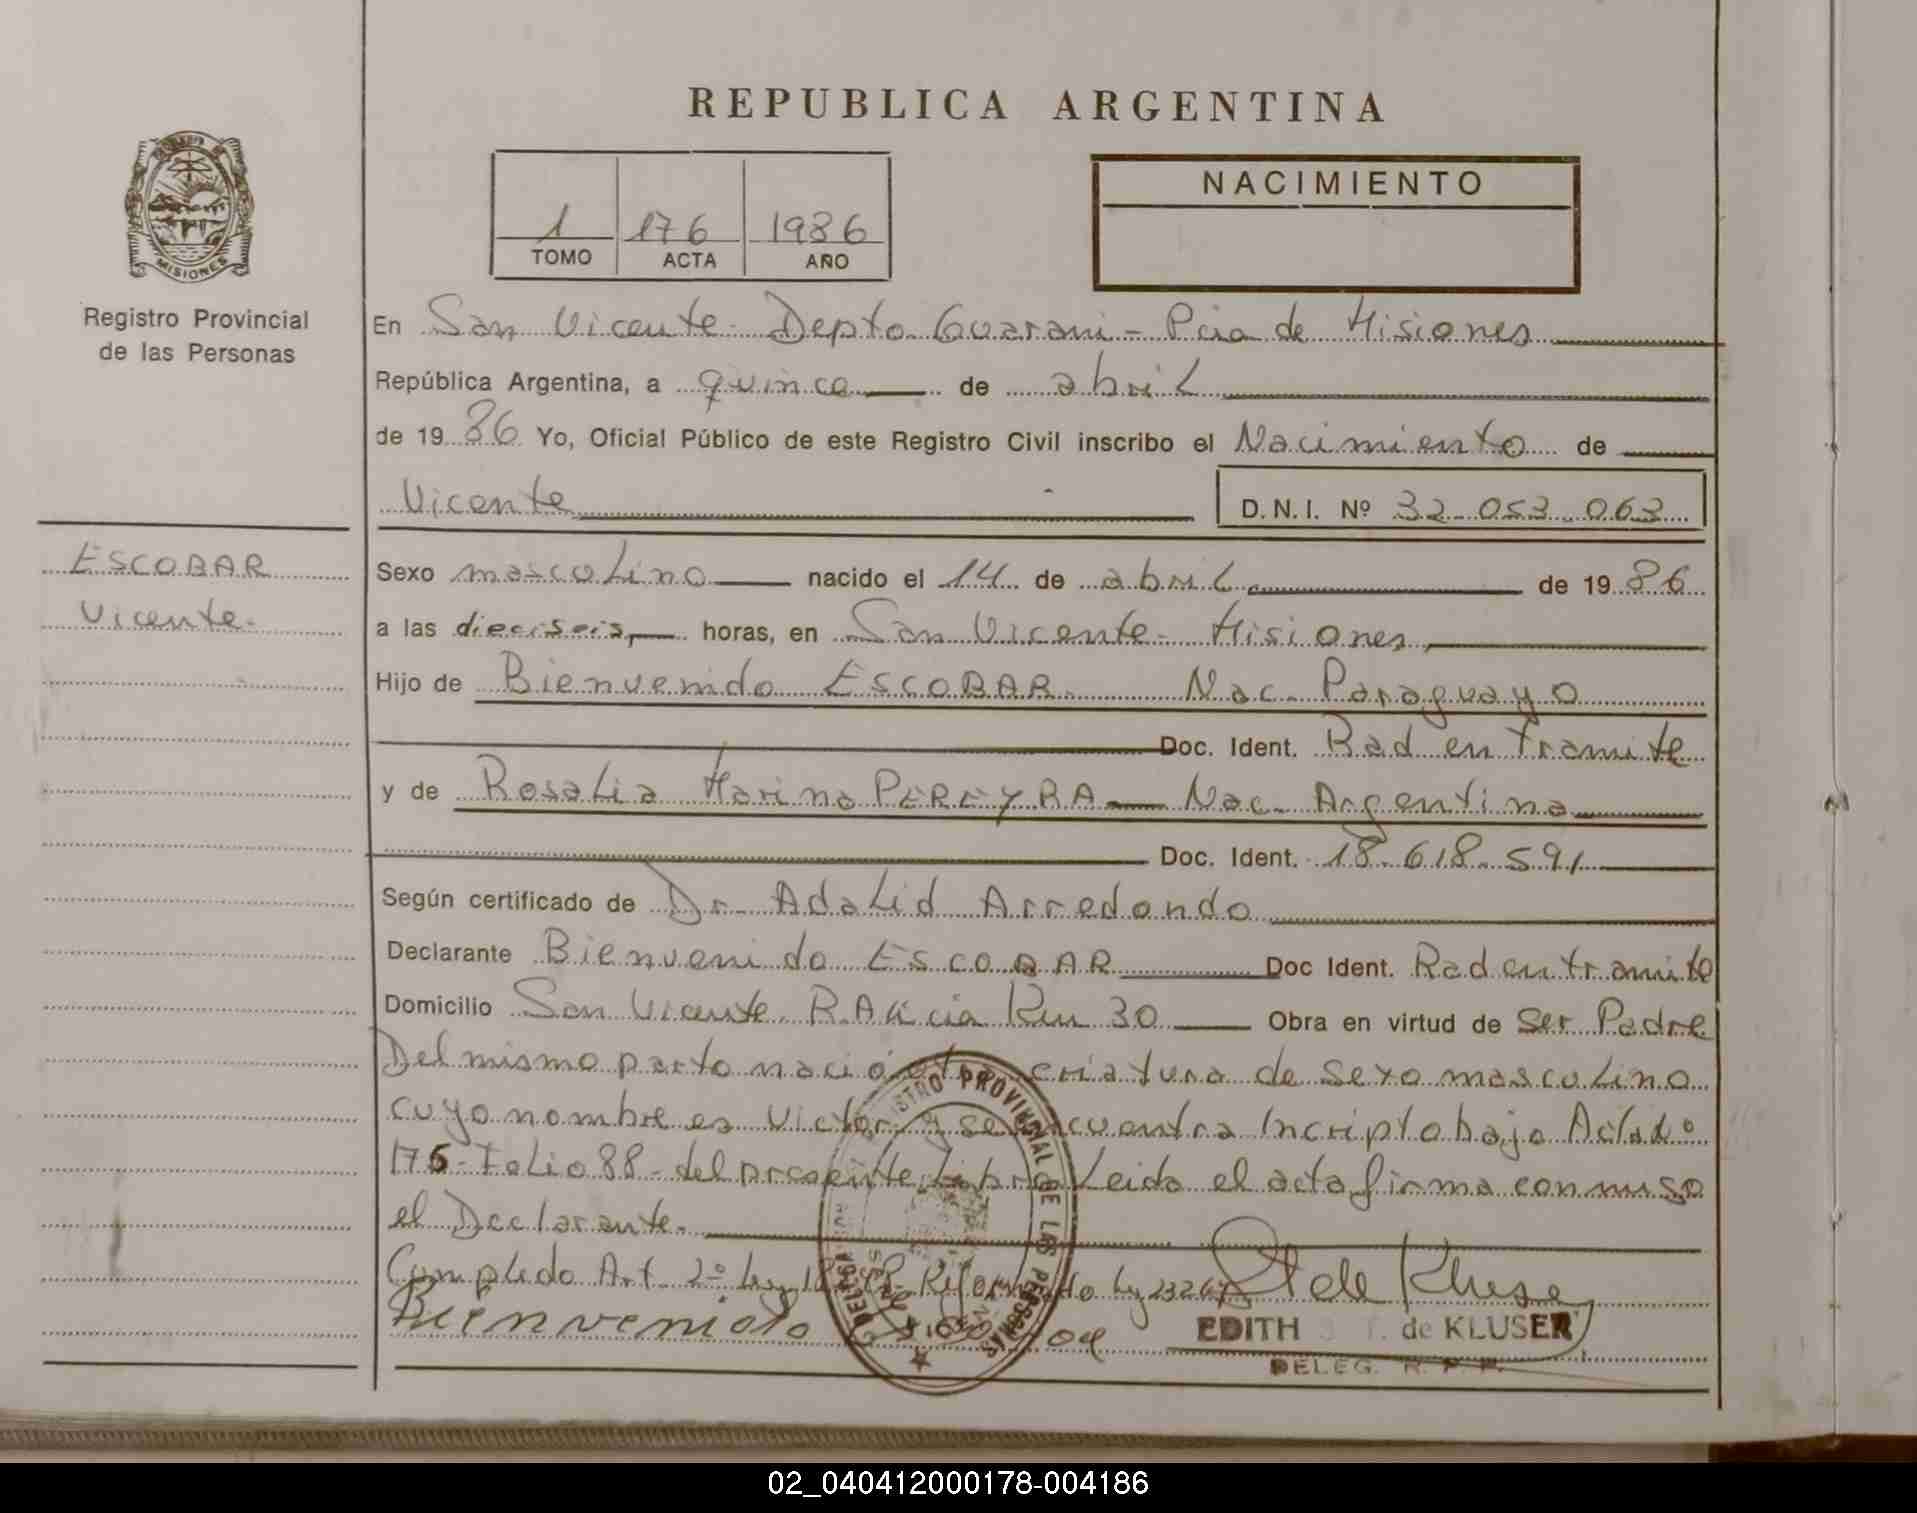 REPUBLICA ARGENTINA
1 176 1986
TOMO ACTA AÑO
NACIMIENTO
MISIONES
Registro Provincial
de las Personas
ESCOBAR
Vicente.
En San Vicente - Depto Guarani - Pcia de Misiones
República Argentina, a quince de abril
de 1986 Yo, Oficial Público de este Registro Civil inscribo el Nacimiento de
Vicente D.N.I. Nº 32.053.063
Sexo masculino nacido el 14 de abril de 1986
a las dieciseis, horas, en San Vicente - Misiones
Hijo de Bienvenido ESCOBAR. Nac. Paraguayo
Doc. Ident. Rad en tramite
y de Rosalia Marina PEREYRA Nac. Argentina
Doc. Ident. 18.618.591
Según certificado de Dr. Adalid Arredondo
Declarante Bienvenido ESCOBAR Doc Ident. Rad en tramite
Domicilio San Vicente Km 30 Obra en virtud de Ser Padre
Del mismo parto nació otra criatura de sexo masculino
cuyo nombre es Victor y se encuentra Incripto bajo Acta Nº
175 - Folio 88 - del presente Libro Leida el acta firma conmigo
el Declarante.
Art. 2º Ley 23264
Bienvenido
EDITH de KLUSER
DELEG. R. P. P.
REGISTRO PROVINCIAL DE LAS PERSONAS
02_040412000178-004186